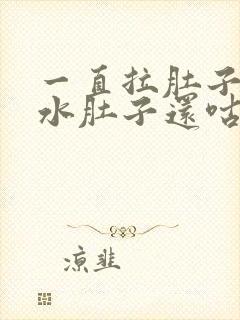 一直拉肚子
水肚子還咕
涼韭